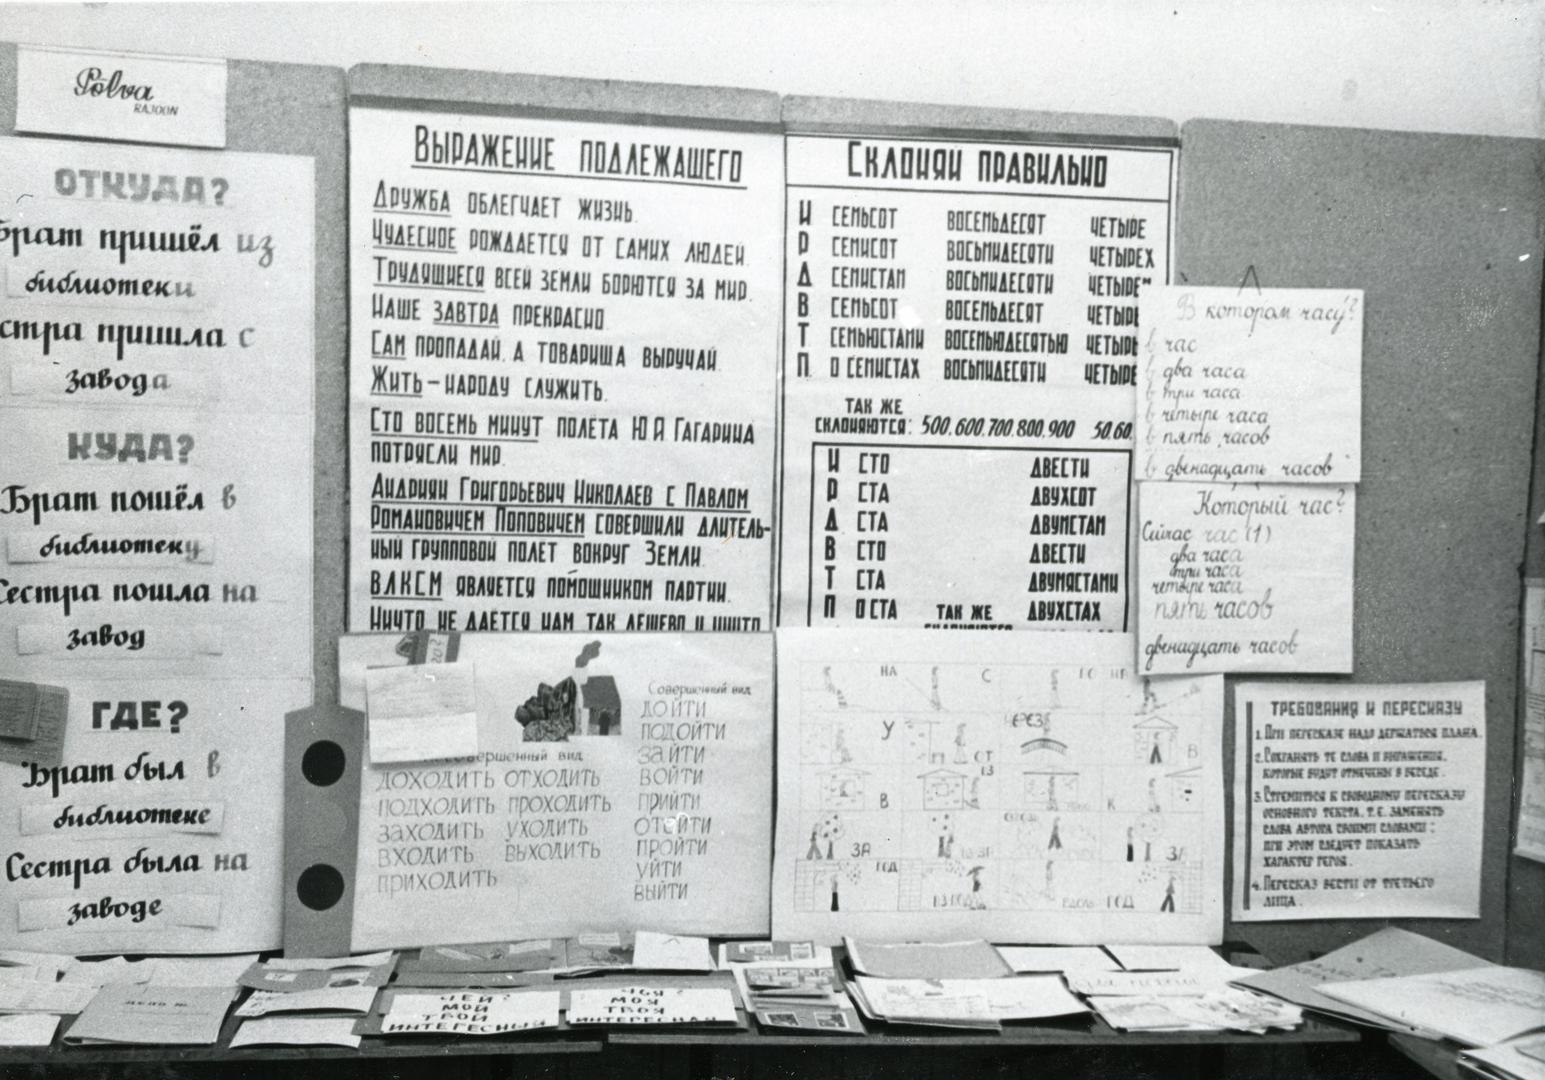 Põlva
RAJOON
ОТКУДА?
Брат пришёл из
библиотеки
Сестра пришла с
завода
КУДА?
Брат пошёл в
библиотеку
Сестра пошла на
завод
ГДЕ?
Брат был в
библиотеке
Сестра была на
заводе
ВЫРАЖЕНИЕ ПОДЛЕЖАЩЕГО
ДРУЖБА ОБЛЕГЧАЕТ ЖИЗНЬ.
ЧУДЕСНОЕ РОЖДАЕТСЯ ОТ САМИХ ЛЮДЕЙ.
ТРУДЯЩИЕСЯ ВСЕЙ ЗЕМЛИ БОРЮТСЯ ЗА МИР.
НАШЕ ЗАВТРА ПРЕКРАСНО.
САМ ПРОПАДАЙ, А ТОВАРИЩА ВЫРУЧАЙ.
ЖИТЬ – НАРОДУ СЛУЖИТЬ.
СТО ВОСЕМЬ МИНУТ ПОЛЁТА Ю А ГАГАРИНА
ПОТРЯСЛИ МИР.
АНДРИЯН ГРИГОРЬЕВИЧ НИКОЛАЕВ С ПАВЛОМ
РОМАНОВИЧЕМ ПОПОВИЧЕМ СОВЕРШИЛИ ДЛИТЕЛЬ-
НЫЙ ГРУППОВОЙ ПОЛЕТ ВОКРУГ ЗЕМЛИ.
ВЛКСМ ЯВЛЯЕТСЯ ПОМОЩНИКОМ ПАРТИИ.
НИЧТО НЕ ДАЁТСЯ НАМ ТАК ДЁШЕВО И НИЧТО
СКЛОНЯЙ ПРАВИЛЬНО
И СЕМЬСОТ ВОСЕМЬДЕСЯТ ЧЕТЫРЕ
Р СЕМИСОТ ВОСЬМИДЕСЯТИ ЧЕТЫРЕХ
Д СЕМИСТАМ ВОСЬМИДЕСЯТИ ЧЕТЫРЕМ
В СЕМЬСОТ ВОСЕМЬДЕСЯТ ЧЕТЫР
Т СЕМЬЮСТАМИ ВОСЕМЬЮДЕСЯТЬЮ ЧЕТЫРЬ
П О СЕМИСТАХ ВОСЬМИДЕСЯТИ ЧЕТЫРЕ
ТАК ЖЕ
СКЛОНЯЮТСЯ: 500, 600, 700, 800, 900 50, 60,
И СТО ДВЕСТИ
Р СТА ДВУХСОТ
Д СТА ДВУМСТАМ
В СТО ДВЕСТИ
Т СТА ДВУМЯСТАМИ
П О СТА ТАК ЖЕ ДВУХСТАХ
В котором часу?
в час
в два часа
в три часа
в четыре часа
в пять часов
в двенадцать часов
Который час?
Сейчас час (1)
два часа
три часа
четыре часа
пять часов
двенадцать часов
овершенный вид
ДОХОДИТЬ ОТХОДИТЬ
ПОДХОДИТЬ ПРОХОДИТЬ
ЗАХОДИТЬ УХОДИТЬ
ВХОДИТЬ ВЫХОДИТЬ
ПРИХОДИТЬ
Совершенный вид
ДОЙТИ
ПОДОЙТИ
ЗАЙТИ
ВОЙТИ
ПРИЙТИ
ОТОЙТИ
ПРОЙТИ
УЙТИ
ВЫЙТИ
НА С
У ЧЕРЕЗ В
ИЗ
В К
ЗА ИЗ-ЗА ЗА
ПОД ИЗ-ПОД ВДОЛЬ ПОД
ТРЕБОВАНИЯ К ПЕРЕСКАЗУ
1. ПРИ ПЕРЕСКАЗЕ НАДО ДЕРЖАТЬСЯ ПЛАНА.
2. СОХРАНЯТЬ ТЕ СЛОВА И ВЫРАЖЕНИЯ,
КОТОРЫЕ БУДУТ ОТМЕЧЕНЫ В БЕСЕДЕ.
3. СТРЕМИТЬСЯ К СВОБОДНОМУ ПЕРЕСКАЗУ
ОСНОВНОГО ТЕКСТА, Т.Е. ЗАМЕНЯТЬ
СЛОВА АВТОРА СВОИМИ СЛОВАМИ;
ПРИ ЭТОМ СЛЕДУЕТ ПОКАЗАТЬ
ХАРАКТЕР ГЕРОЯ.
4. ПЕРЕСКАЗ ВЕСТИ ОТ ТРЕТЬЕГО
ЛИЦА.
ЧЕЙ?
МОЙ
ТВОЙ
ИНТЕРЕСНЫЙ
ЧЬЯ?
МОЯ
ТВОЯ
ИНТЕРЕСНАЯ